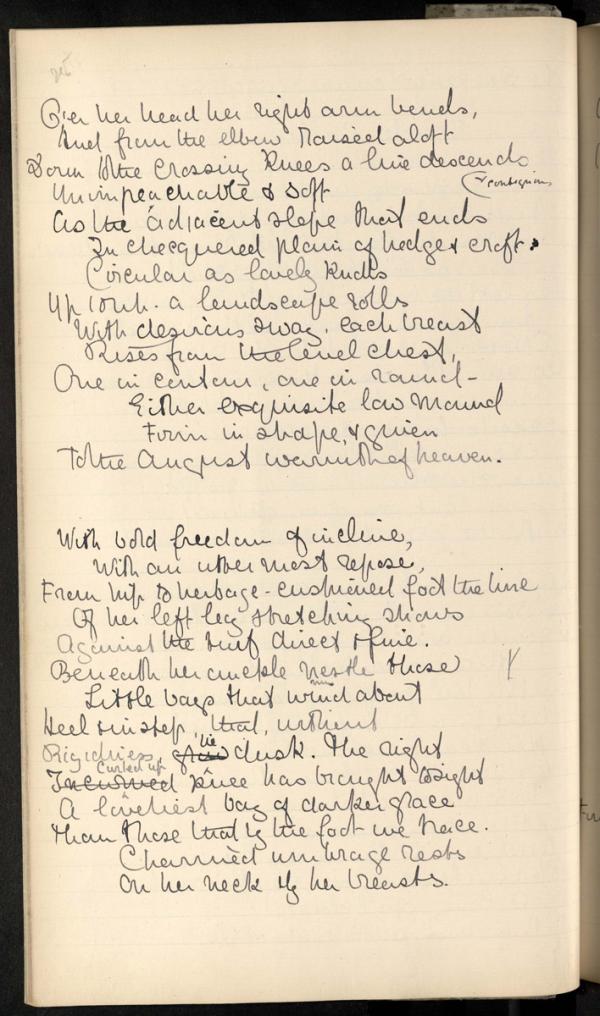 O'er her head her right arm bends,
And from the elbow raisèd aloft
Down to the crossing knees a line descends
Unimpeachable & soft
contiguous
As the adjacent slope that ends
In chequered plain of hedge & croft.
Circular as lovely knolls
Up to wh. a landscape rolls
With desirous sway, each breast
Rises from the level chest,
One in contour, one in round –
Either exquisite low mound
Firm in shape, & given
To the August warmth of heaven.
With bold freedom of incline,
With an uttermost repose,
From hip to herbage-cushioned foot the line
Of her left leg stretching shows
Against the turf direct & fine.
Beneath her ankle nestle those
Little bays that wind about
Heel & instep, that, without
lie
Rigidness, dusk. The right
Curled up
Incurved knee has brought to sight
A loveliest bay of darker grace
Than those that by the foot we trace.
Charmèd umbrage rests
On her neck & by her breasts.